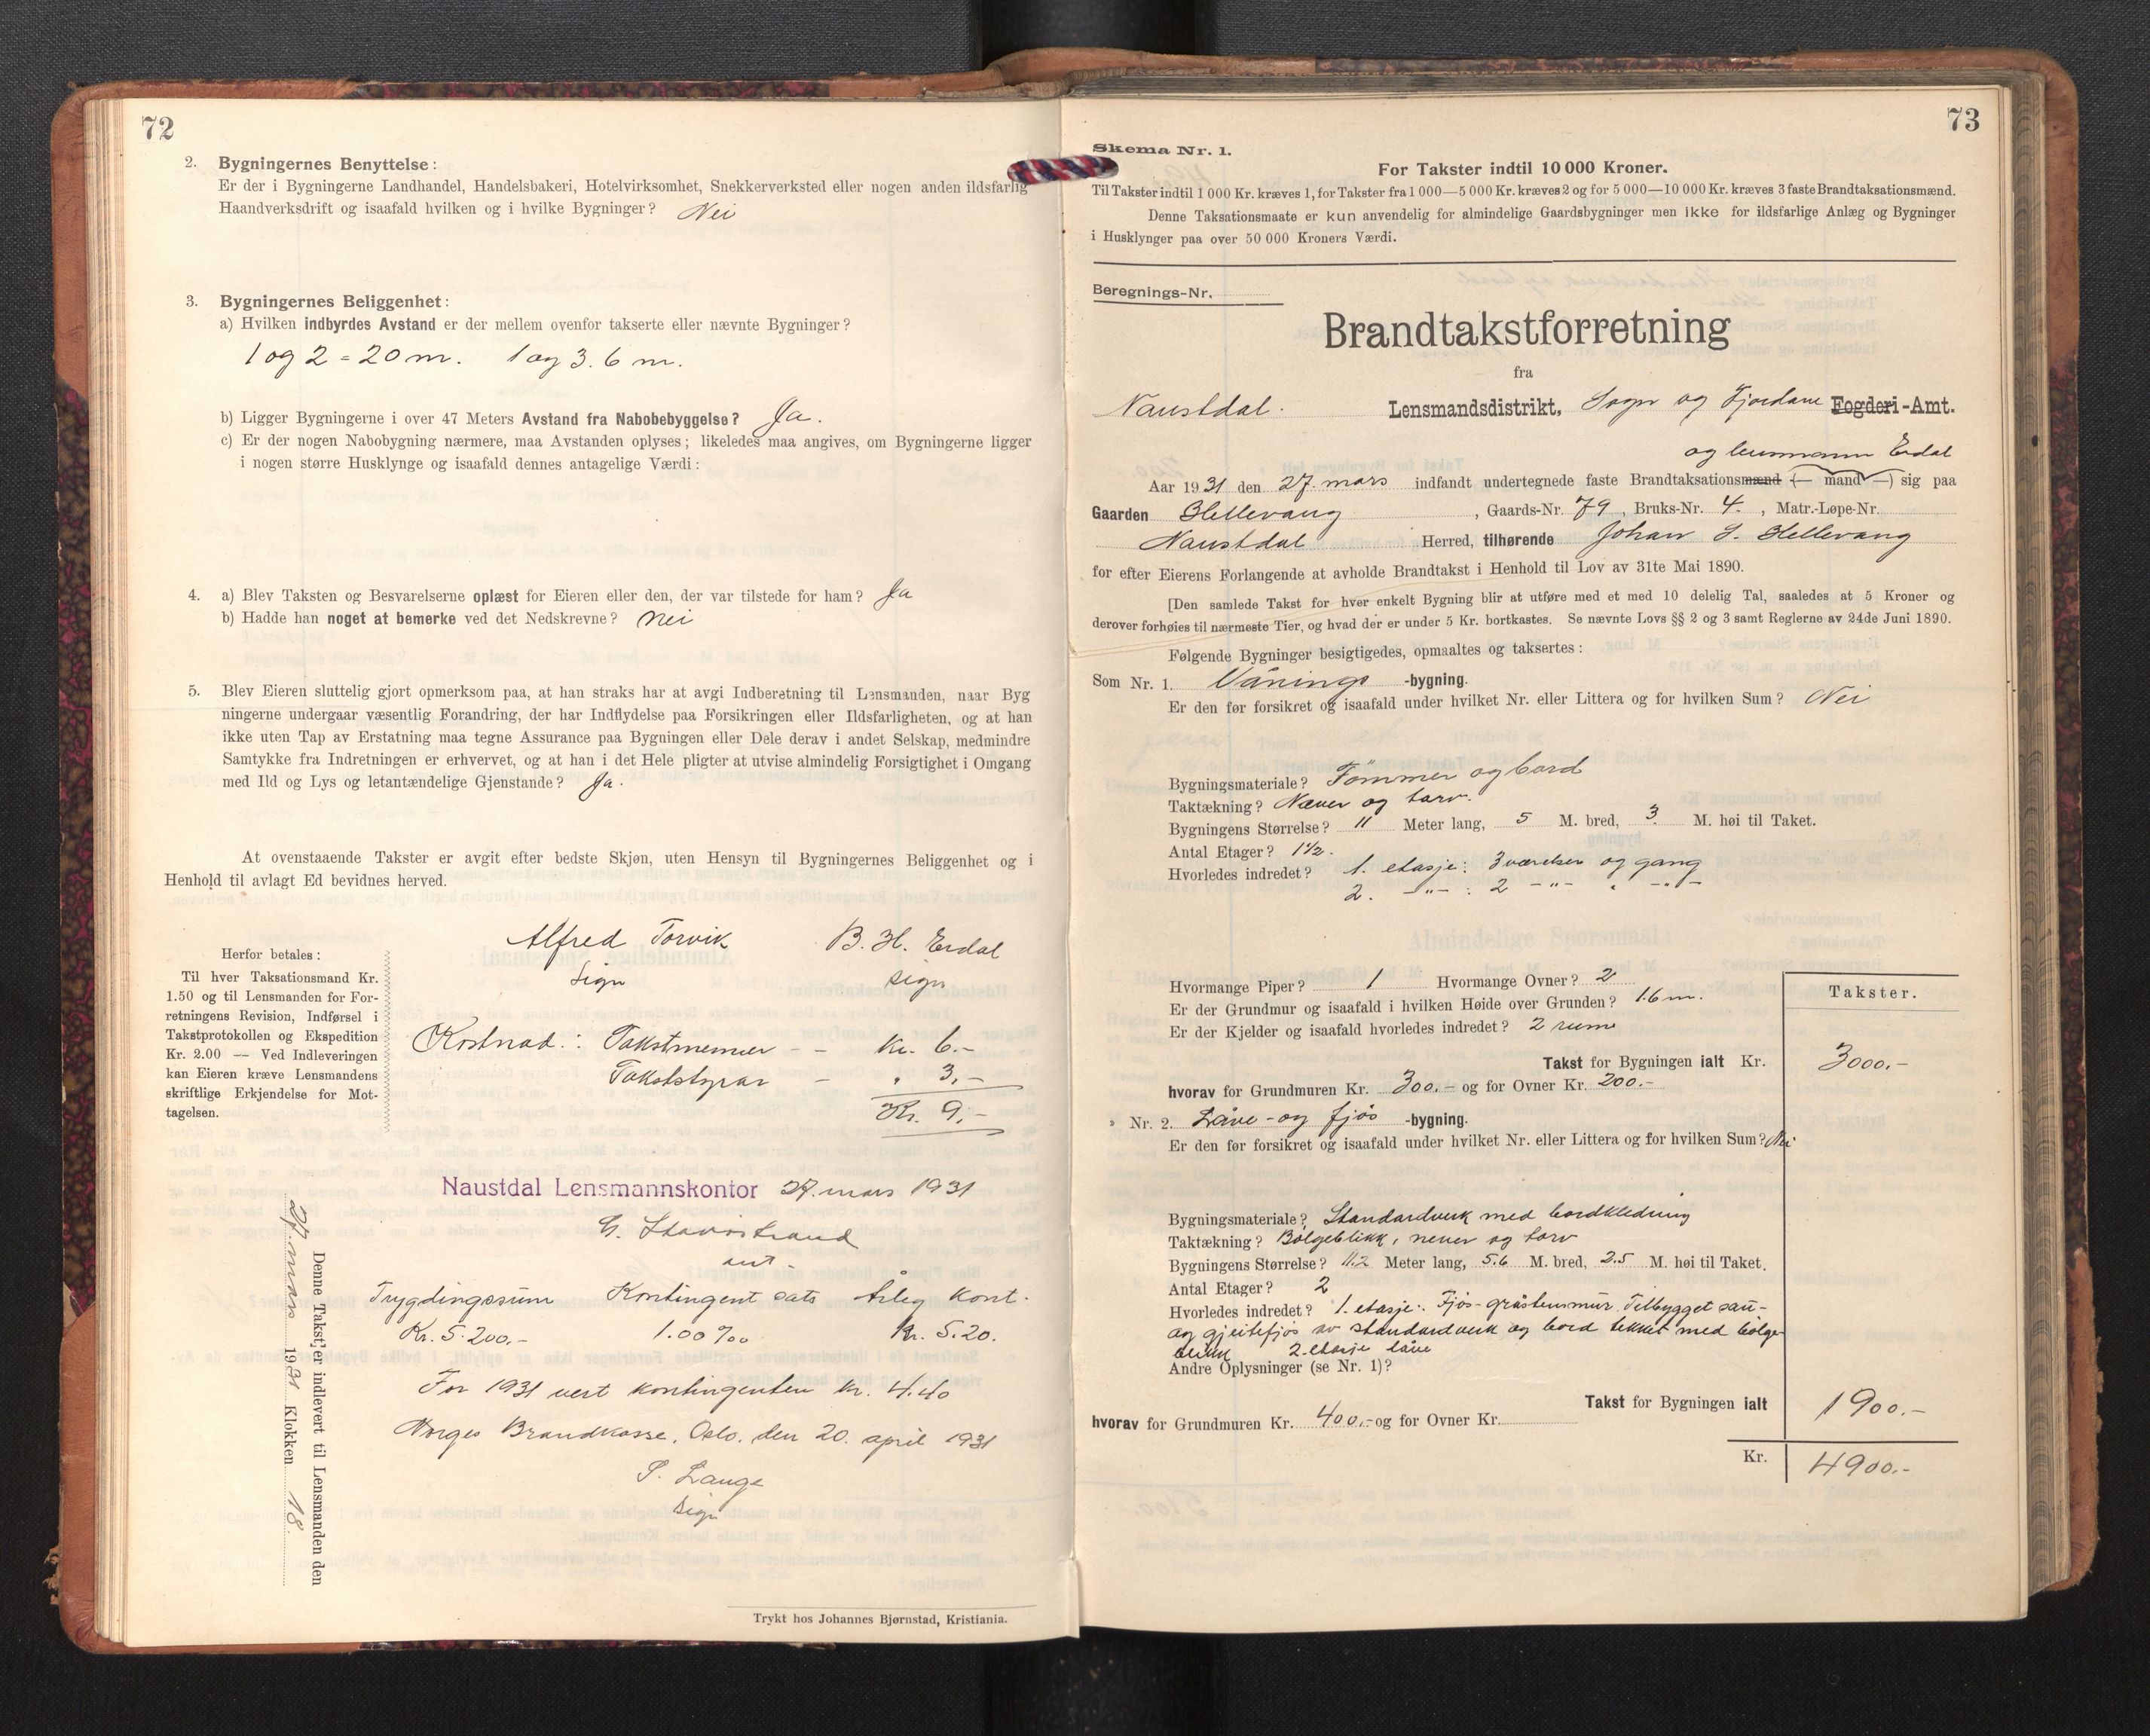 72
2. Bygningernes Benyttelse:
Er der i Bygningerne Landhandel, Handelsbakeri, Hotelvirksomhet, Snekkerverksted eller nogen anden ildsfarlig
Haandverksdrift og isaafald hvilken og i hvilke Bygninger? Nei
3. Bygningernes Beliggenhet:
a) Hvilken indbyrdes Avstand er der mellem ovenfor takserte eller nævnte Bygninger?
1 og 2 = 20 m. 1 og 3. 6 m.
b) Ligger Bygningerne i over 47 Meters Avstand fra Nabobebyggelse? Ja.
c) Er der nogen Nabobygning nærmere, maa Avstanden oplyses; likeledes maa angives, om Bygningerne ligger
i nogen større Husklynge og isaafald dennes antagelige Værdi:
4. a) Blev Taksten og Besvarelserne oplæst for Eieren eller den, der var tilstede for ham? Ja
b) Hadde han noget at bemerke ved det Nedskrevne? Nei
5. Blev Eieren sluttelig gjort opmerksom paa, at han straks har at avgi Indberetning til Lensmanden, naar Byg
ningerne undergaar væsentlig Forandring, der har Indflydelse paa Forsikringen eller Ildsfarligheten, og at han
ikke uten Tap av Erstatning maa tegne Assurance paa Bygningen eller Dele derav i andet Selskap, medmindre
Samtykke fra Indretningen er erhvervet, og at han i det Hele pligter at utvise almindelig Forsigtighet i Omgang
med Ild og Lys og letantændelige Gjenstande? Ja.
At ovenstaaende Takster er avgit efter bedste Skjøn, uten Hensyn til Bygningernes Beliggenhet og i
Henhold til avlagt Ed bevidnes herved.
Alfred Torvik B. H. Erdal
sign sign
Herfor betales:
Til hver Taksationsmand Kr.
1.50 og til Lensmanden for For-
retningens Revision, Indførsel i
Takstprotokollen og Ekspedition
Kr. 2.00 — Ved Indleveringen
kan Eieren kræve Lensmandens
skriftlige Erkjendelse for Mot-
tagelsen.
Kostnad: Takstmenner - - Kr. 6.-
Takststyrar - " 3,-
Kr. 9,-
Naustdal Lensmannskontor 27. mars 1931
aut.
Denne Takst er indlevert til Lensmanden den
27. mars 1931 Klokken 18.
Trygdingssum Kontingentsats Årleg kont.
Kr. 5.200,- 1.00 ‰ Kr. 5.20.
For 1931 vert kontingenten kr. 4.40
Norges Brandkasse, Oslo, den 20. april 1931
S. Lange
sign
Trykt hos Johannes Bjørnstad, Kristiania.
73
Skema Nr. 1.
For Takster indtil 10 000 Kroner.
Til Takster indtil 1 000 Kr. kræves 1, for Takster fra 1 000—5 000 Kr. kræves 2 og for 5 000—10 000 Kr. kræves 3 faste Brandtaksationsmænd.
Denne Taksationsmaate er kun anvendelig for almindelige Gaardsbygninger men ikke for ildsfarlige Anlæg og Bygninger
i Husklynger paa over 50 000 Kroners Værdi.
Beregnings-Nr.
Brandtakstforretning
fra
Naustdal. Lensmandsdistrikt, Sogn og Fjordane Fogderi-Amt.
og lensmann Erdal
Aar 1931 den 27. mars indfandt undertegnede faste Brandtaksationsmænd (— mand —) sig paa
Gaarden Hellevang, Gaards-Nr. 79, Bruks-Nr. 4., Matr.-Løpe-Nr.
Naustdal Herred, tilhørende Johan S. Hellevang
for efter Eierens Forlangende at avholde Brandtakst i Henhold til Lov av 31te Mai 1890.
[Den samlede Takst for hver enkelt Bygning blir at utføre med et med 10 delelig Tal, saaledes at 5 Kroner og
derover forhøies til nærmeste Tier, og hvad der er under 5 Kr. bortkastes. Se nævnte Lovs §§ 2 og 3 samt Reglerne av 24de Juni 1890.
Følgende Bygninger besigtigedes, opmaaltes og taksertes:
Som Nr. 1. Vånings -bygning.
Er den før forsikret og isaafald under hvilket Nr. eller Littera og for hvilken Sum? Nei
Bygningsmateriale? Tømmer og bord
Taktækning? Næver og torv.
Bygningens Størrelse? 11 Meter lang, 5 M. bred, 3 M. høi til Taket.
Antal Etager? 1½.
Hvorledes indredet? 1. etasje: 3 værelser og gang
2. -"- : 2 -"- " -"-
Hvormange Piper? 1 Hvormange Ovner? 2
Er der Grundmur og isaafald i hvilken Høide over Grunden? 1.6 m.
Er der Kjelder og isaafald hvorledes indredet? 2 rum
Takster.
Takst for Bygningen ialt Kr. 3000.-
hvorav for Grundmuren Kr. 300.- og for Ovner Kr. 200.-
" Nr. 2. Låve- og fjøs -bygning.
Er den før forsikret og isaafald under hvilket Nr. eller Littera og for hvilken Sum? Nei
Bygningsmateriale? Standardverk med bordkledning
Taktækning? Bølgeblikk, never og torv
Bygningens Størrelse? 11.2 Meter lang, 5.6 M. bred, 2.5 M. høi til Taket.
Antal Etager? 2
Hvorledes indredet? 1. etasje: Fjøs-gråstensmur. Tilbygget sau-
og gjeitefjøs av standardverk og bord tekket med bølge-
blikk 2. etasje låve
Andre Oplysninger (se Nr. 1)?
Takst for Bygningen ialt 1900.-
hvorav for Grundmuren Kr. 400.- og for Ovner Kr.
Kr. 4900.-